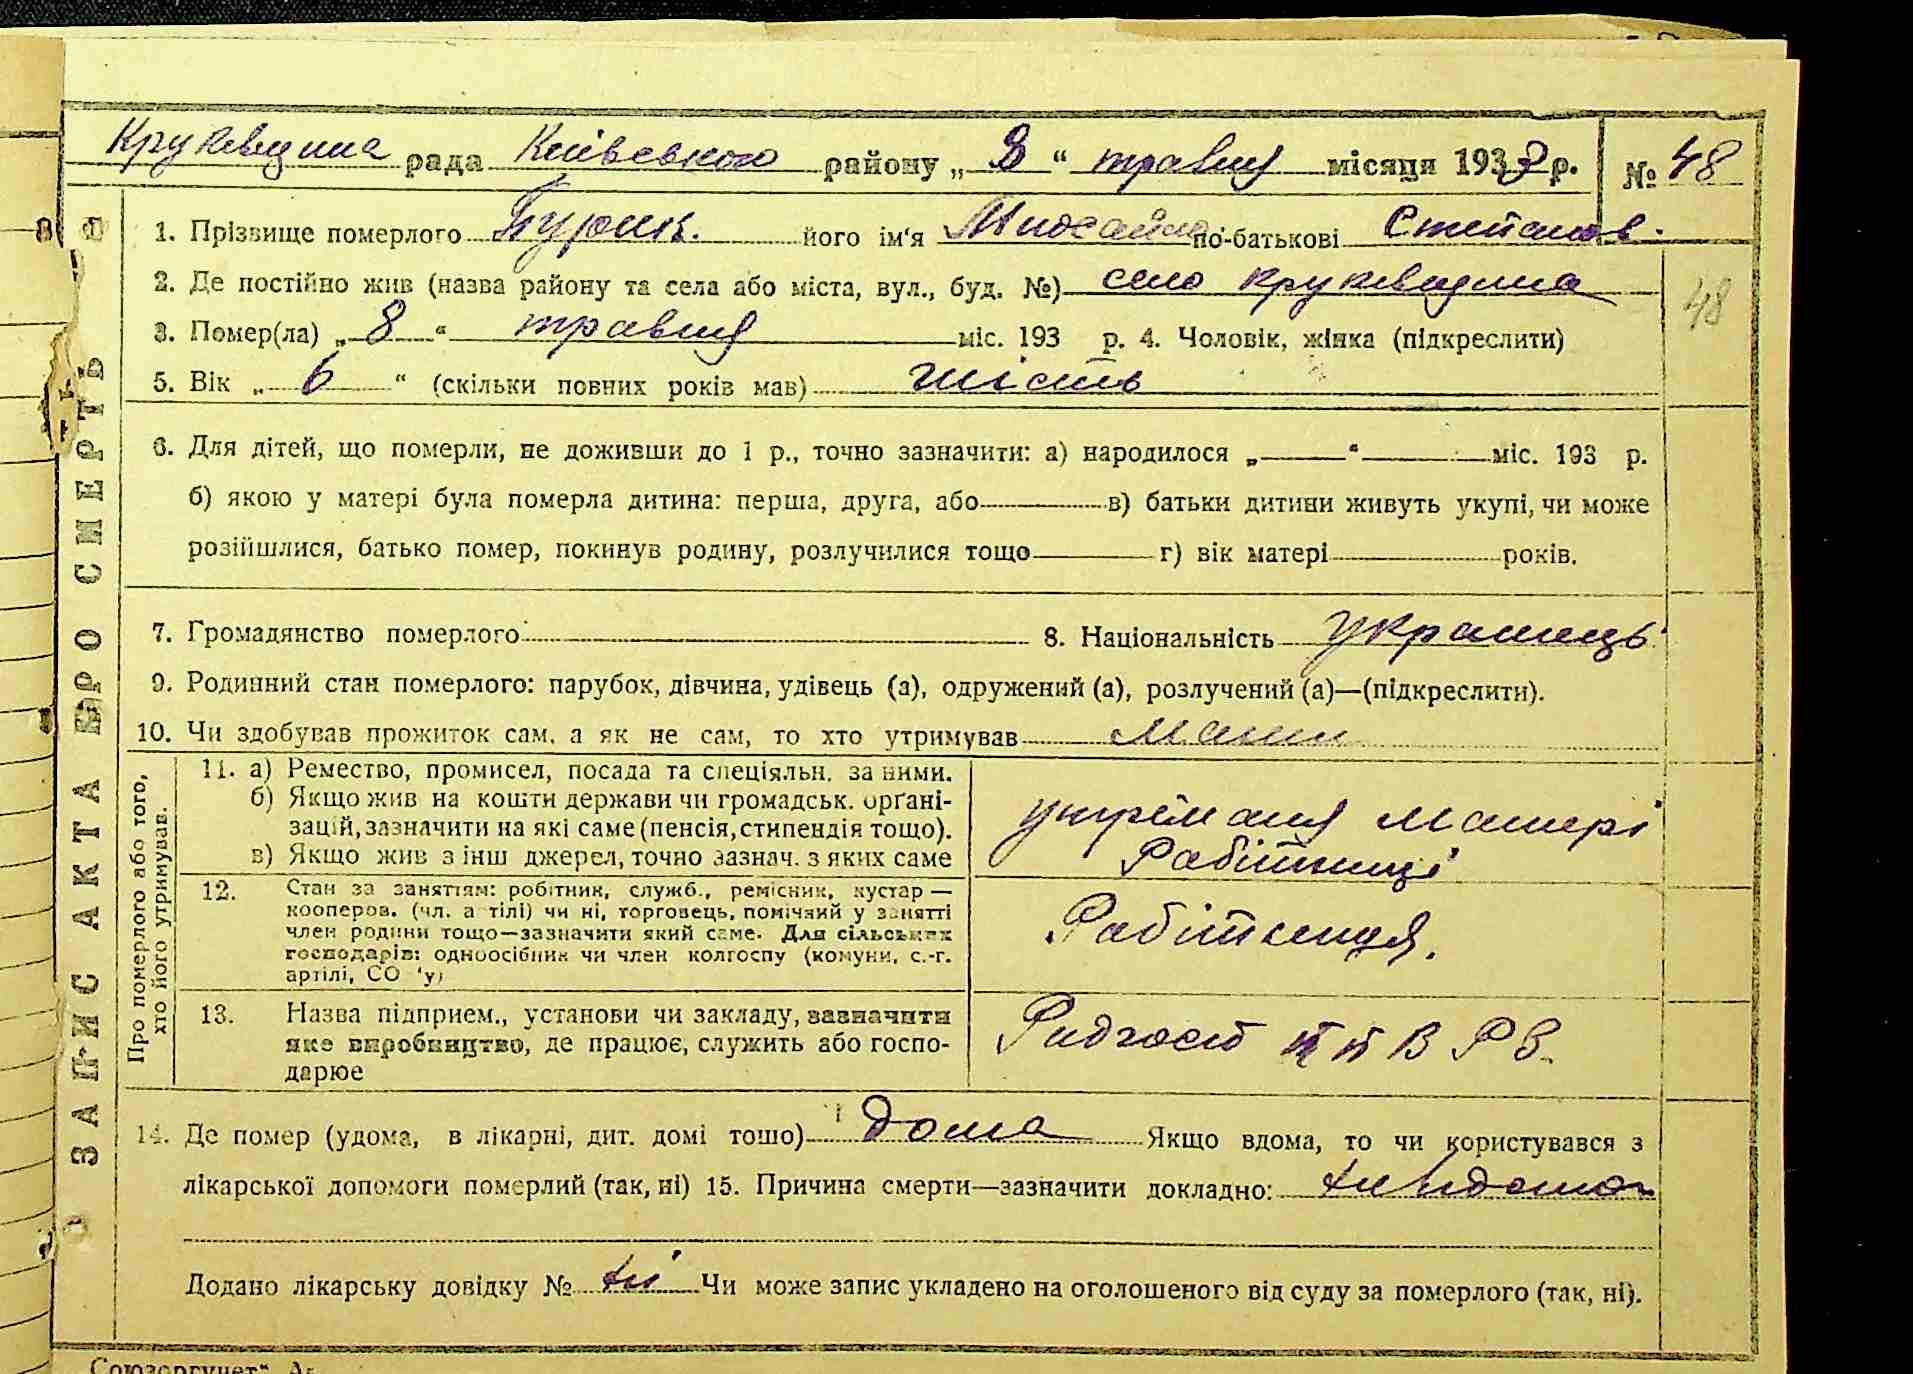 Круківщина рада Київського району „ 8 “ травня місяця 1933 р. № 48
1. Прізвище померлого Бурик. його ім'я Михайло по-батькові Степанов.
2. Де постійно жив (назва району та села або міста, вул., буд. №) село Круківщина
48
3. Помер(ла) „ 8 “ травня міс. 193 р. 4. Чоловік, жінка (підкреслити)
5. Вік „ 6 “ (скільки повних років мав) шість
6. Для дітей, що померли, не доживши до 1 р., точно зазначити: а) народилося „ “ міс. 193 р.
б) якою у матері була померла дитина: перша, друга, або в) батьки дитини живуть укупі, чи може
розійшлися, батько помер, покинув родину, розлучилися тощо г) вік матері років.
7. Громадянство померлого 8. Національність украинець
9. Родинний стан померлого: парубок, дівчина, удівець (а), одружений (а), розлучений (а)—(підкреслити).
10. Чи здобував прожиток сам, а як не сам, то хто утримував Мати
ЗАПИС АКТА ПРО СМЕРТЬ
Про померлого або того,
хто його утримував.
11. а) Ремество, промисел, посада та спеціяльн. за ними.
б) Якщо жив на кошти держави чи громадськ. орґані-
зацій, зазначити на які саме (пенсія, стипендія тощо).
в) Якщо жив з інш джерел, точно зазнач. з яких саме
утріманя Матері
Рабітниці
12. Стан за заняттям: робітник, служб., ремісник, кустар —
кооперов. (чл. артілі) чи ні, торговець, помічний у занятті
член родини тощо—зазначити який саме. Для сільських
господарів: одноосібник чи член колгоспу (комуни, с.-г.
артілі, СОЗ'у)
Рабітниця.
13. Назва підприєм., установи чи закладу, зазначити
яке виробництво, де працює, служить або госпо-
дарює
Радгосп
14. Де помер (удома, в лікарні, дит. домі тощо) дома Якщо вдома, то чи користувався з
лікарської допомоги померлий (так, ні) 15. Причина смерти—зазначити докладно:
Додано лікарську довідку № ні Чи може запис укладено на оголошеного від суду за померлого (так, ні).
„Союзоргучет“